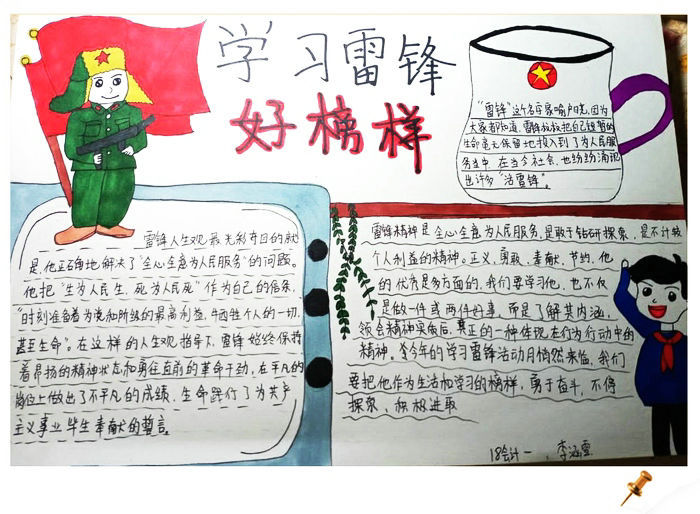 学习雷锋
好榜样
"雷锋"这个名字家喻户晓,因为
大家都知道,雷锋叔叔把自己短暂的
生命毫无保留地投入到了为人民服
务当中,在当今社会,也纷纷涌现
出许多"活雷锋"。
雷锋人生观最光彩夺目的就
是,他正确地解决了"全心全意为人民服务"的问题。
他把"生为人民生,死为人民死"作为自己的信条,
"时刻准备着为党和阶级的最高利益,牺牲个人的一切,
甚至生命"。在这样的人生观指导下,雷锋始终保持
着昂扬的精神状态和勇往直前的革命干劲,在平凡的
岗位上做出了不平凡的成绩,生命践行了为共产
主义事业毕生奉献的誓言。
雷锋精神是全心全意为人民服务,是敢于钻研探索,是不计较
个人利益的精神。正义、勇敢、奉献、节约,他
的优秀是多方面的,我们要学习他,也不仅
是做一件或两件好事,而是了解其内涵,
领会精神实质后,真正的一种体现在行为行动中的
精神。今年的学习雷锋活动月悄然来临,我们
要把他作为生活和学习的榜样,勇于奋斗,不停
探索,积极进取
18会计一 李涵雪